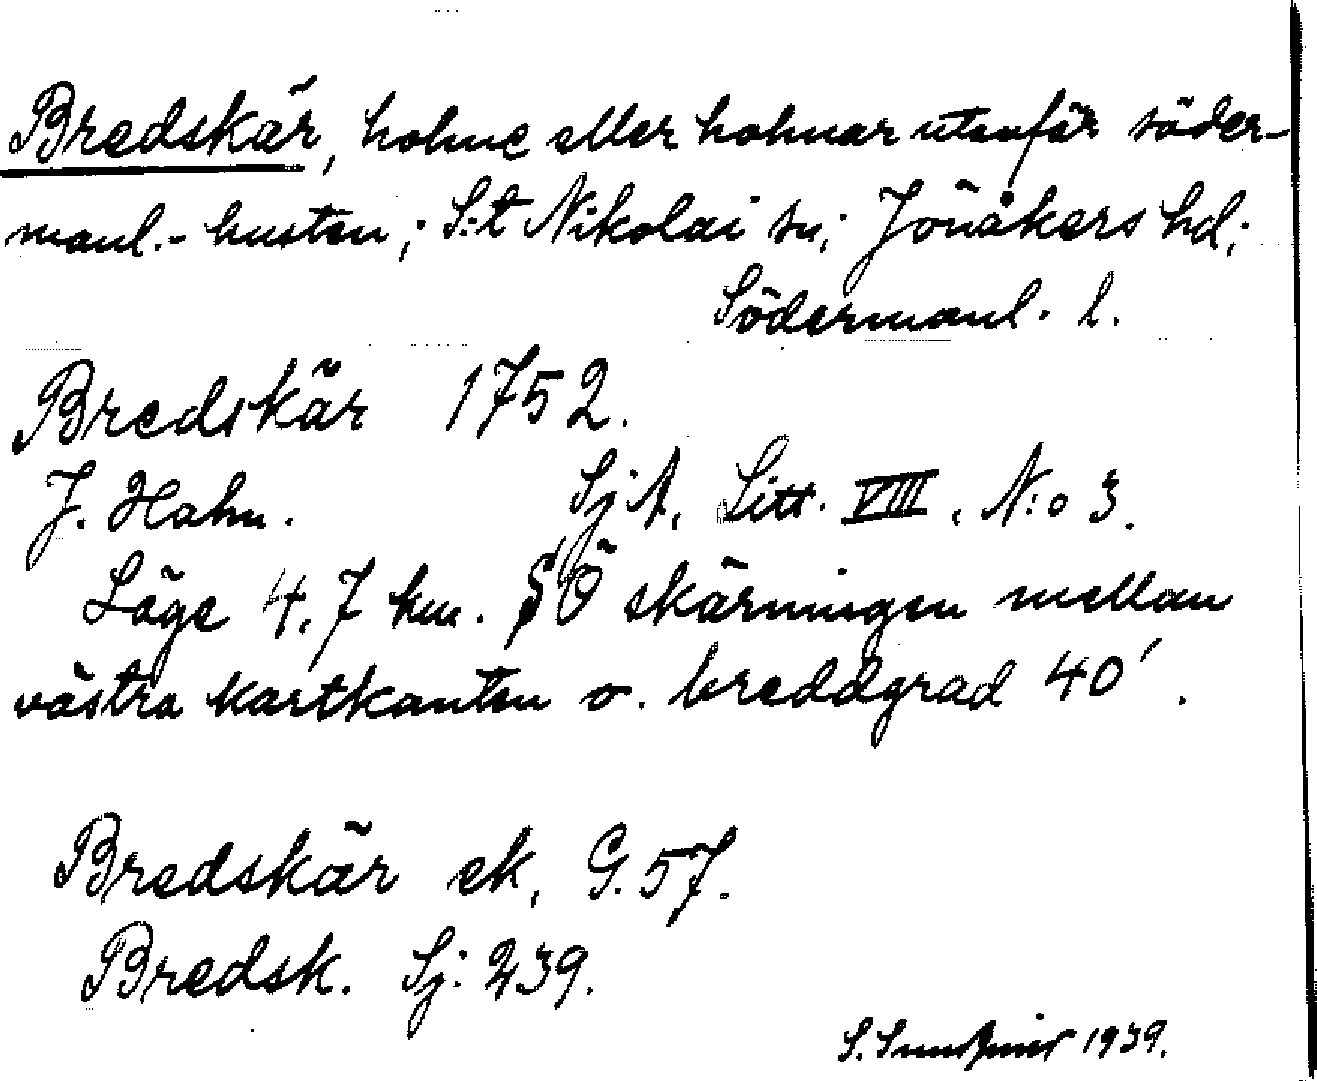 Bredskär, holme eller holmar utanför söder-
manl.-kusten; S:t Nikolai sn; Jönåkers hd;
Södermanl. l.
Bredskär 1752.
J. Hahn. SjA, Litt. VIII. N:o 3.
Läge 4,7 km. SÖ skärningen mellan
västra kartkanten o. breddgrad 40'.
Bredskär ek. G. 57.
Bredsk. Sj. 239.
S. 1939.